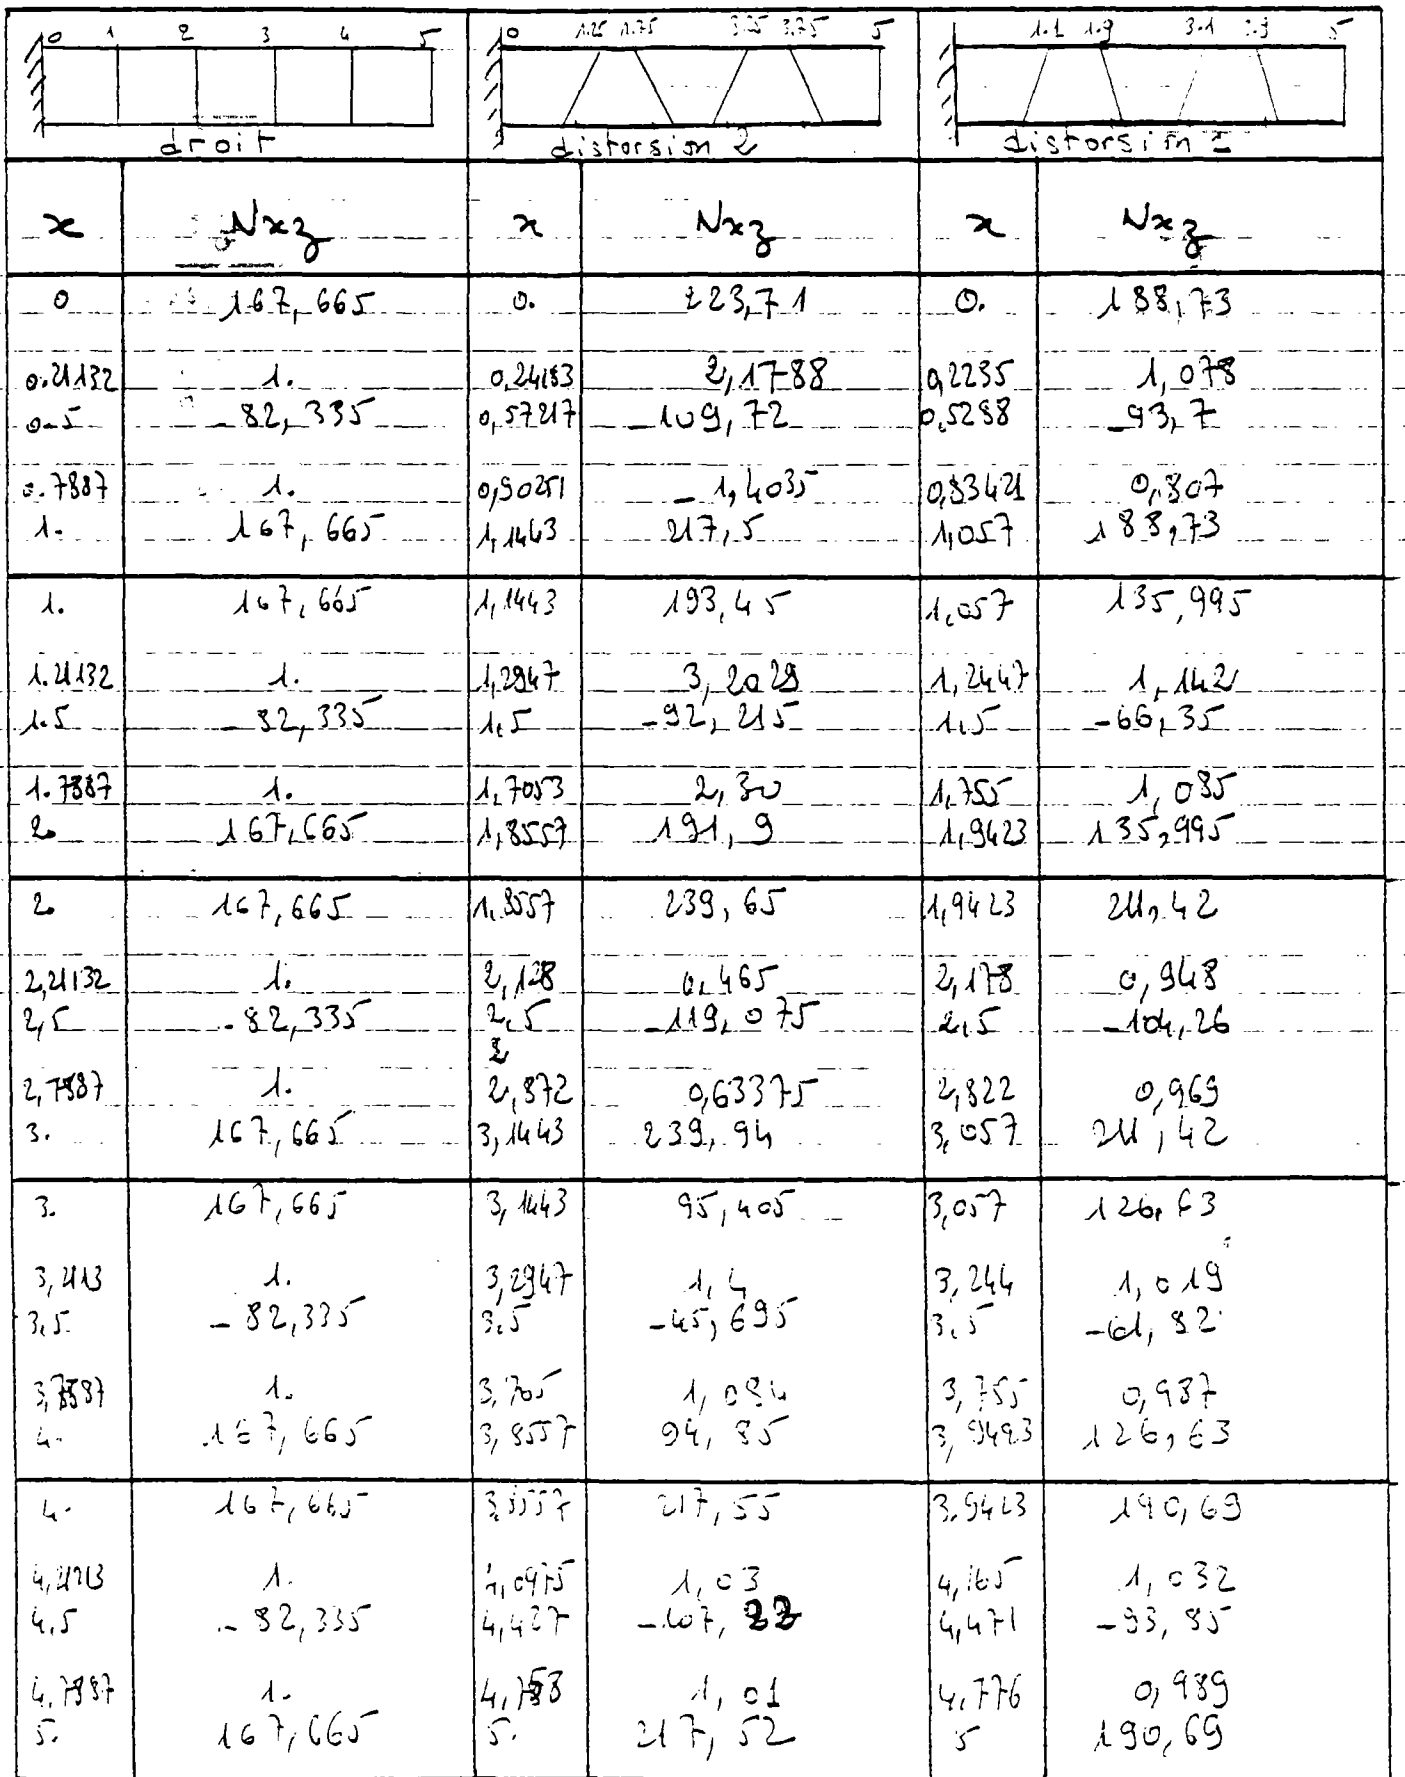 0 1 2 3 4 5 0 1.25 1.75 3.25 3.75 5 1.1 1.9 3.1 3.9 5
droit distorsion 2 distorsion 1
x Nxz x Nxz x Nxz
0 167,665 0. 223,71 0. 188,73
0.21132 1. 0,24183 2,1788 0,2235 1,078
0.5 -82,335 0,57217 -109,72 0,5288 -93,7
0.7887 1. 0,90251 -1,4035 0,83421 0,807
1. 167,665 1,1443 217,5 1,057 188,73
1. 167,665 1,1443 193,45 1,057 135,995
1.21132 1. 1,2947 3,2029 1,2447 1,142
1.5 -82,335 1,5 -92,215 1,5 -66,35
1.7887 1. 1,7053 2,30 1,755 1,085
2. 167,665 1,8557 191,9 1,9423 135,995
2. 167,665 1,8557 239,65 1,9423 211,42
2,21132 1. 2,128 0,465 2,178 0,948
2,5 -82,335 2,5 -119,075 2,5 -104,26
2,7887 1. 2,872 0,63375 2,822 0,969
3. 167,665 3,1443 239,94 3,057 211,42
3. 167,665 3,1443 95,405 3,057 126,63
3,2113 1. 3,2947 1,4 3,244 1,019
3,5 -82,335 3,5 -45,695 3,5 -61,82
3,7887 1. 3,705 1,094 3,755 0,987
4. 167,665 3,8557 94,85 3,9423 126,63
4. 167,665 3,8557 217,55 3.9423 190,69
4,2113 1. 4,0975 1,03 4,165 1,032
4,5 -82,335 4,427 -107,22 4,471 -93,85
4,7887 1. 4,758 1,01 4,776 0,989
5. 167,665 5. 217,52 5 190,69